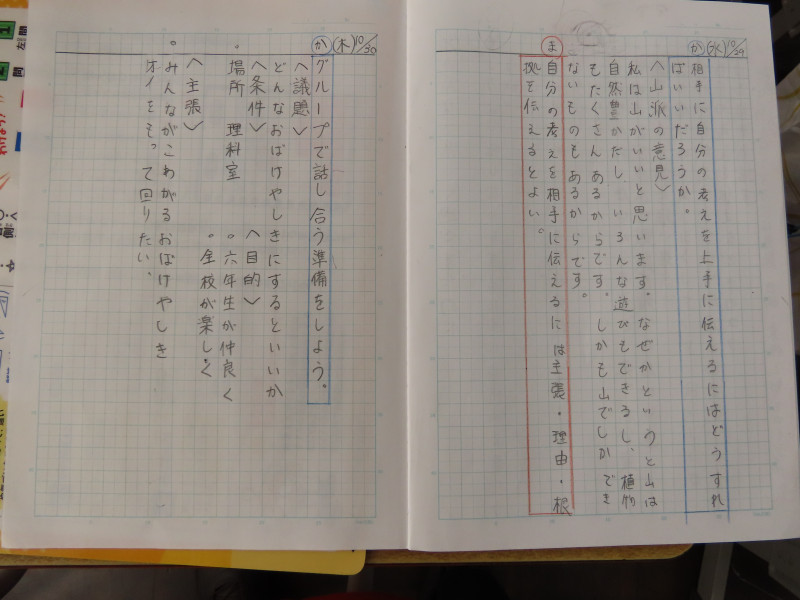 か (水) 10/29
相手に自分の考えを上手に伝えるにはどうすれ
ばいいだろうか。
〈山派の意見〉
私は山がいいと思います。なぜかというと山は
自然豊かだし、いろんな遊びもできるし、植物
もたくさんあるからです。しかも山でしかでき
ないものもあるからです。
ま
自分の考えを相手に伝えるには主張・理由・根
拠を伝えるとよい。
か (木) 10/30
グループで話し合う準備をしよう。
〈議題〉
どんなおばけやしきにするといいか
〈条件〉
〈目的〉
場所 理科室
。六年生が仲良く
。全校が楽しく
〈主張〉
。みんながこわがるおばけやしき
オイをそって回りたい、